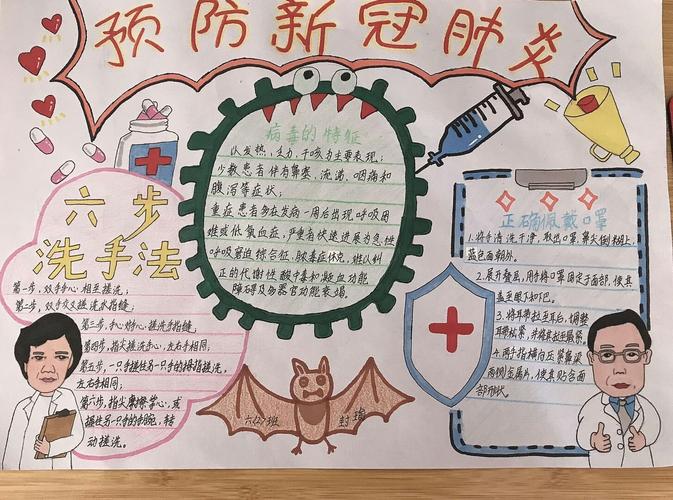 预防新冠肺炎
病毒的特征
以发热,乏力,干咳为主要表现;
少数患者伴有鼻塞,流涕,咽痛和
腹泻等症状;
重症患者多在发病一周后出现呼吸困
难或低氧血症,严重者快速进展为急性
呼吸窘迫综合征,脓毒症休克,难以纠
正的代谢性酸中毒和凝血功能
障碍及多器官功能衰竭。
六步
洗手法
第一步,双手手心相互搓洗;
第二步,双手交叉搓洗手指缝;
第三步,手心对手心搓洗手指缝,
第四步,指尖搓洗手心,左右手相同;
第五步,一只手握住另一只手的拇指搓洗,
左右手相同;
第六步,指尖摩擦掌心,或
握住另一只手的手腕,转
动搓洗。
正确佩戴口罩
1.将手清洗干净,取出口罩,鼻夹侧朝上,
蓝色面朝外。
2.展开叠层,用手将口罩固定于面部,使其
盖至眼下和下巴。
3.将耳带拉至耳后,调整
耳带松紧,并将其拉至最紧,
4.两手指横向压紧鼻梁
两侧金属片,使其贴合面
部形状。
六(2)班
封瑞